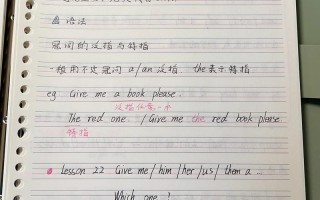 语法
冠词的泛指与特指
一般用不定冠词 a/an 泛指, the表示特指
eg Give me a book please.
泛指任意一本
The red one. / Give me the red book please.
特指
Lesson 22 Give me / him / her / us / them a ...
Which one ?